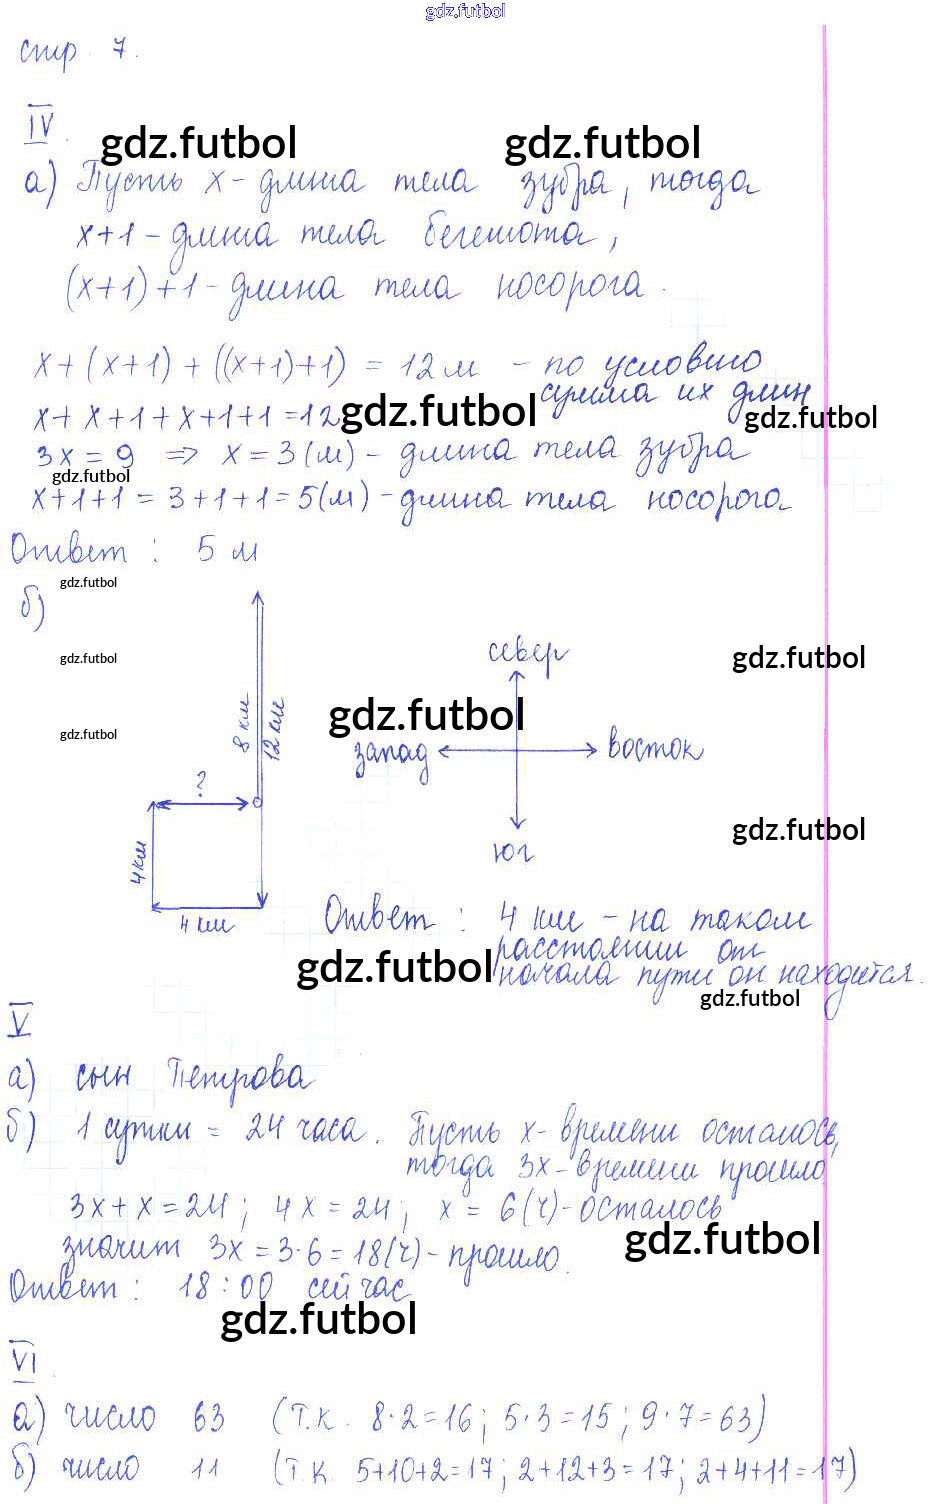 gdz.futbol
стр. 7.
IV.
gdz.futbol gdz.futbol
а) Пусть x - длина тела зубра, тогда
x+1 - длина тела бегемота,
(x+1)+1 - длина тела носорога.
x+(x+1)+((x+1)+1) = 12 м - по условию
сумма их длин
x+x+1+x+1+1=12
gdz.futbol gdz.futbol
3x=9 ⇒ x=3(м) - длина тела зубра
gdz.futbol
x+1+1=3+1+1=5(м) - длина тела носорога
Ответ: 5 м
gdz.futbol
б)
север
gdz.futbol gdz.futbol
8 км
12 км
gdz.futbol
gdz.futbol
запад восток
?
gdz.futbol
юг
4 км
4 км
Ответ: 4 км - на таком
расстоянии от
начала пути он находится.
gdz.futbol
gdz.futbol
V
а) сын Петрова
б) 1 сутки = 24 часа. Пусть x - времени осталось,
тогда 3x - времени прошло
3x+x=24; 4x=24; x=6(ч) - осталось
значит 3x=3·6=18(ч) - прошло.
gdz.futbol
Ответ: 18:00 сейчас
gdz.futbol
VI.
а) число 63 (т.к. 8·2=16; 5·3=15; 9·7=63)
б) число 11 (т.к. 5+10+2=17; 2+12+3=17; 2+4+11=17)